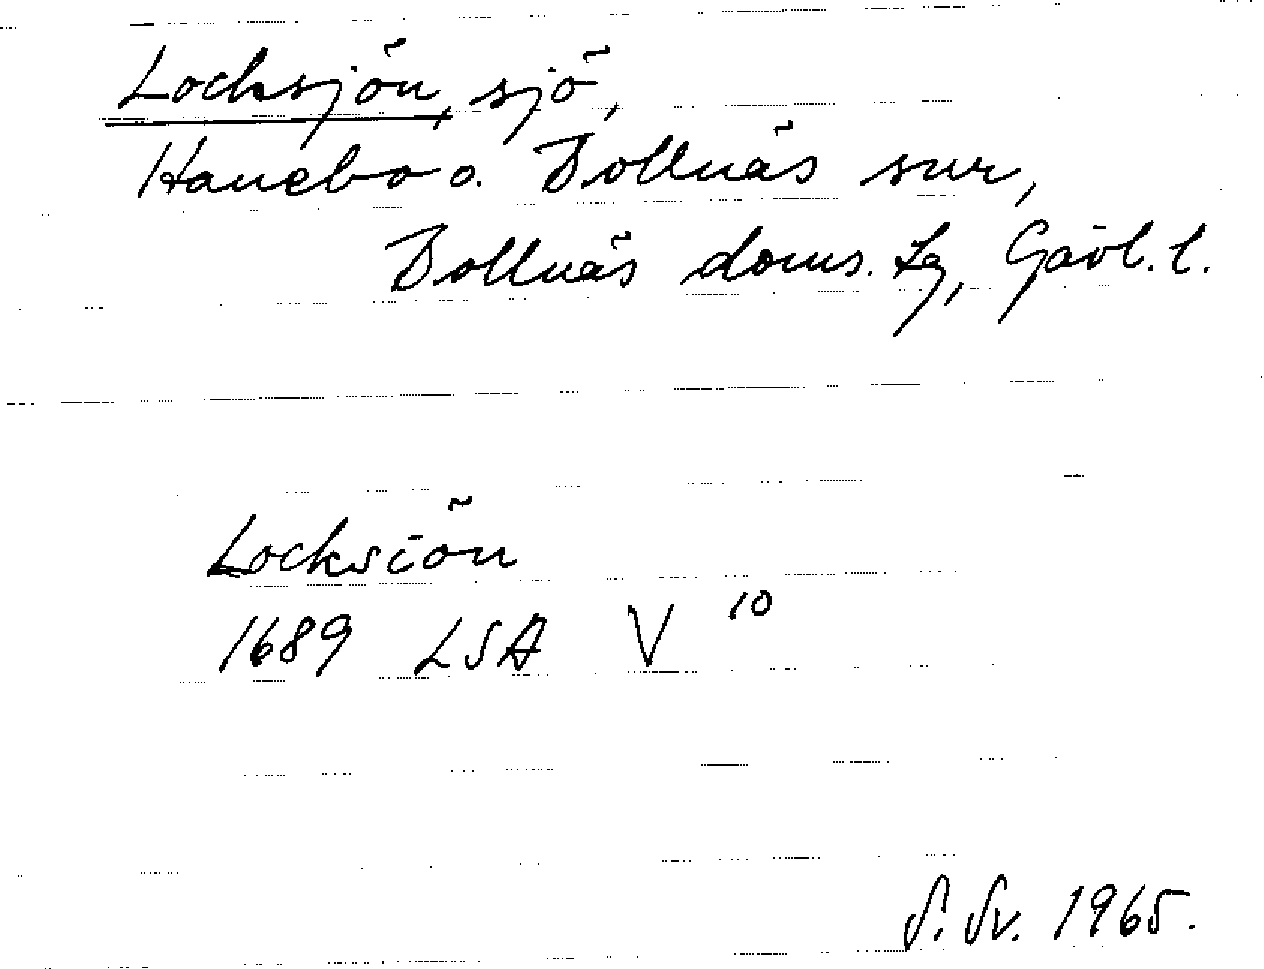 Locksjön, sjö,
Hanebo o. Bollnäs snr,
Bollnäs doms. lg, Gävl. l.
Locksiön
1689 LSA V 10
S. Sv. 1965.